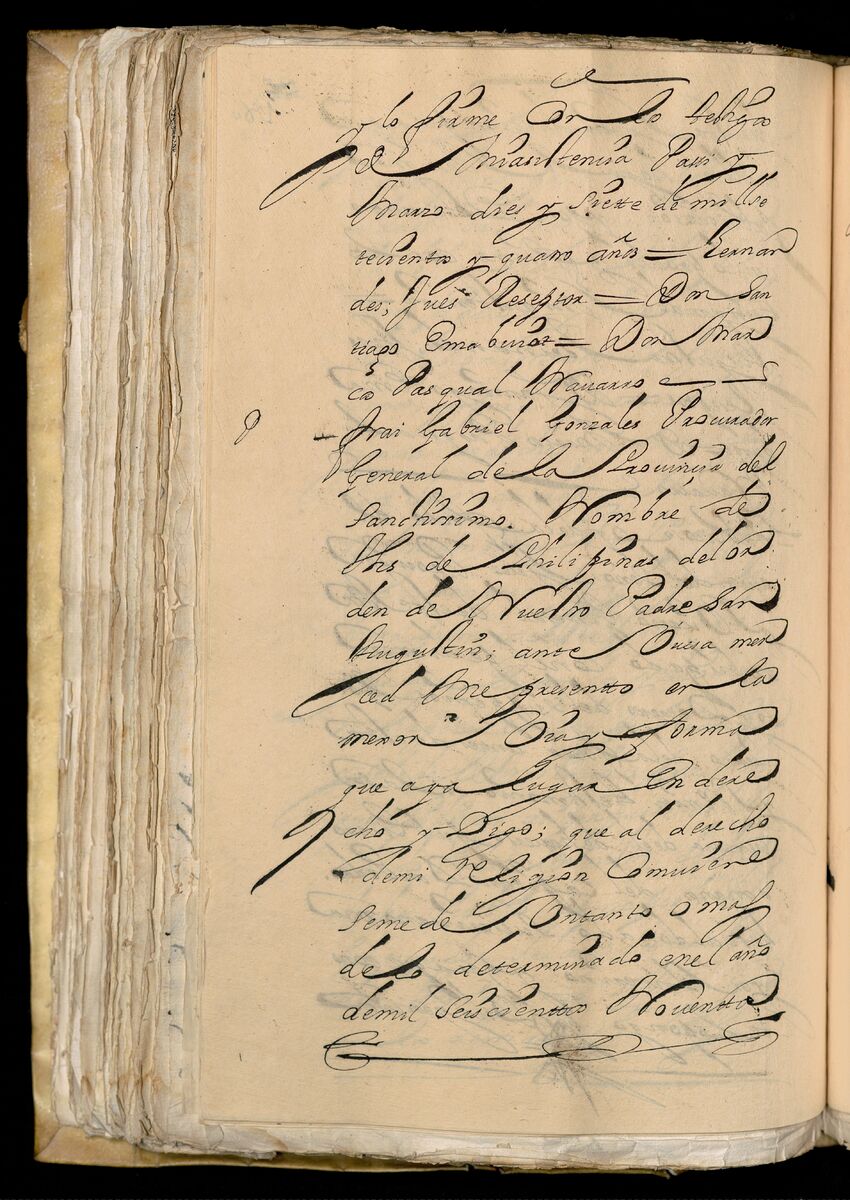 y lo firme Con los testigos
de mi asistencia Passi y
Marzo dies y siette de mill se
tecientos y quatro años = Hernan
des; Jues Reseptor = Don San
tiago = Don Mar
cos Pasqual Navarro
frai Gabriel Gonzales Procurador
General de la Provincia del
Sanctissimo. Nombre de
Jhs de Philipinas del or
den de Nuestro Padre San
Augustin; ante Vuesa mer
sed Me presentto en la
mexor Via y forma
que aya lugar En dere
cho y Digo; que al derecho
demi religion Combiene
seme de Vn tanto o mas
de lo determinado en el año
demil Seiscienttos Noventta